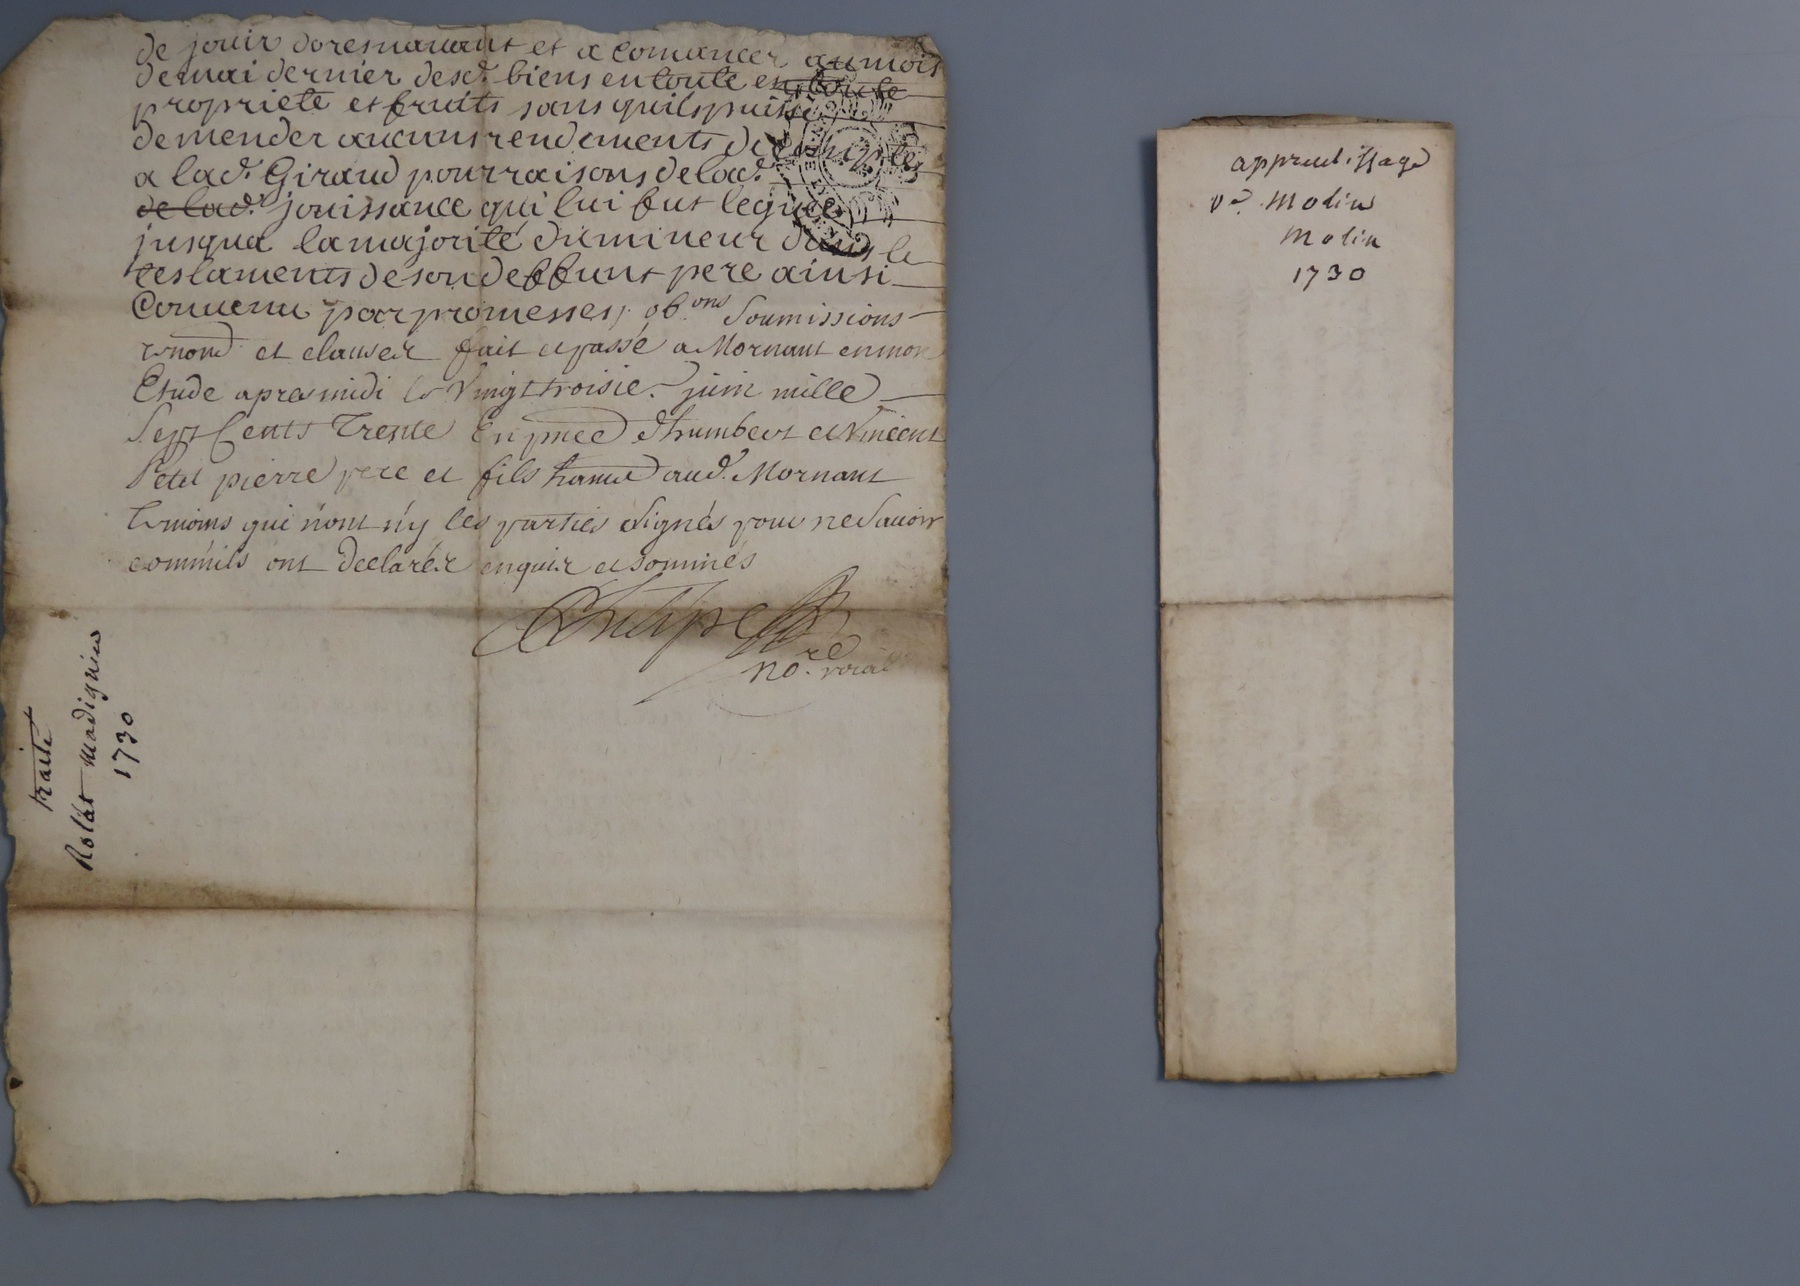 de jouir doresnavant et a comancer au mois
de mai dernier desd. biens en toute en toute
propriete et fruits sans quils puisse
demender aucuns rendements de
a lad. Giraud pour raisons de lad.
de lad. jouissance qui lui fut legue
jusqua la majorité du mineur dans le
testaments de son deffunt pere ainsi
Convenu par promesses, ob.ons Soumissions
renond et clauses fait et passé a Mornant en mon
Etude apres midi le Vingt troisie. juin mille
Sept Cents Trente En pnce d'humbert et Vincent
Petit pierre pere et fils aud. Mornant
temoins qui n'ont n'y les parties signés pour ne Savoir
comm'ils ont declarés enquis et sommés
no.re roial
traité
Rolat Madignieu
1730
apprentissage
ve. Molin
Molin
1730